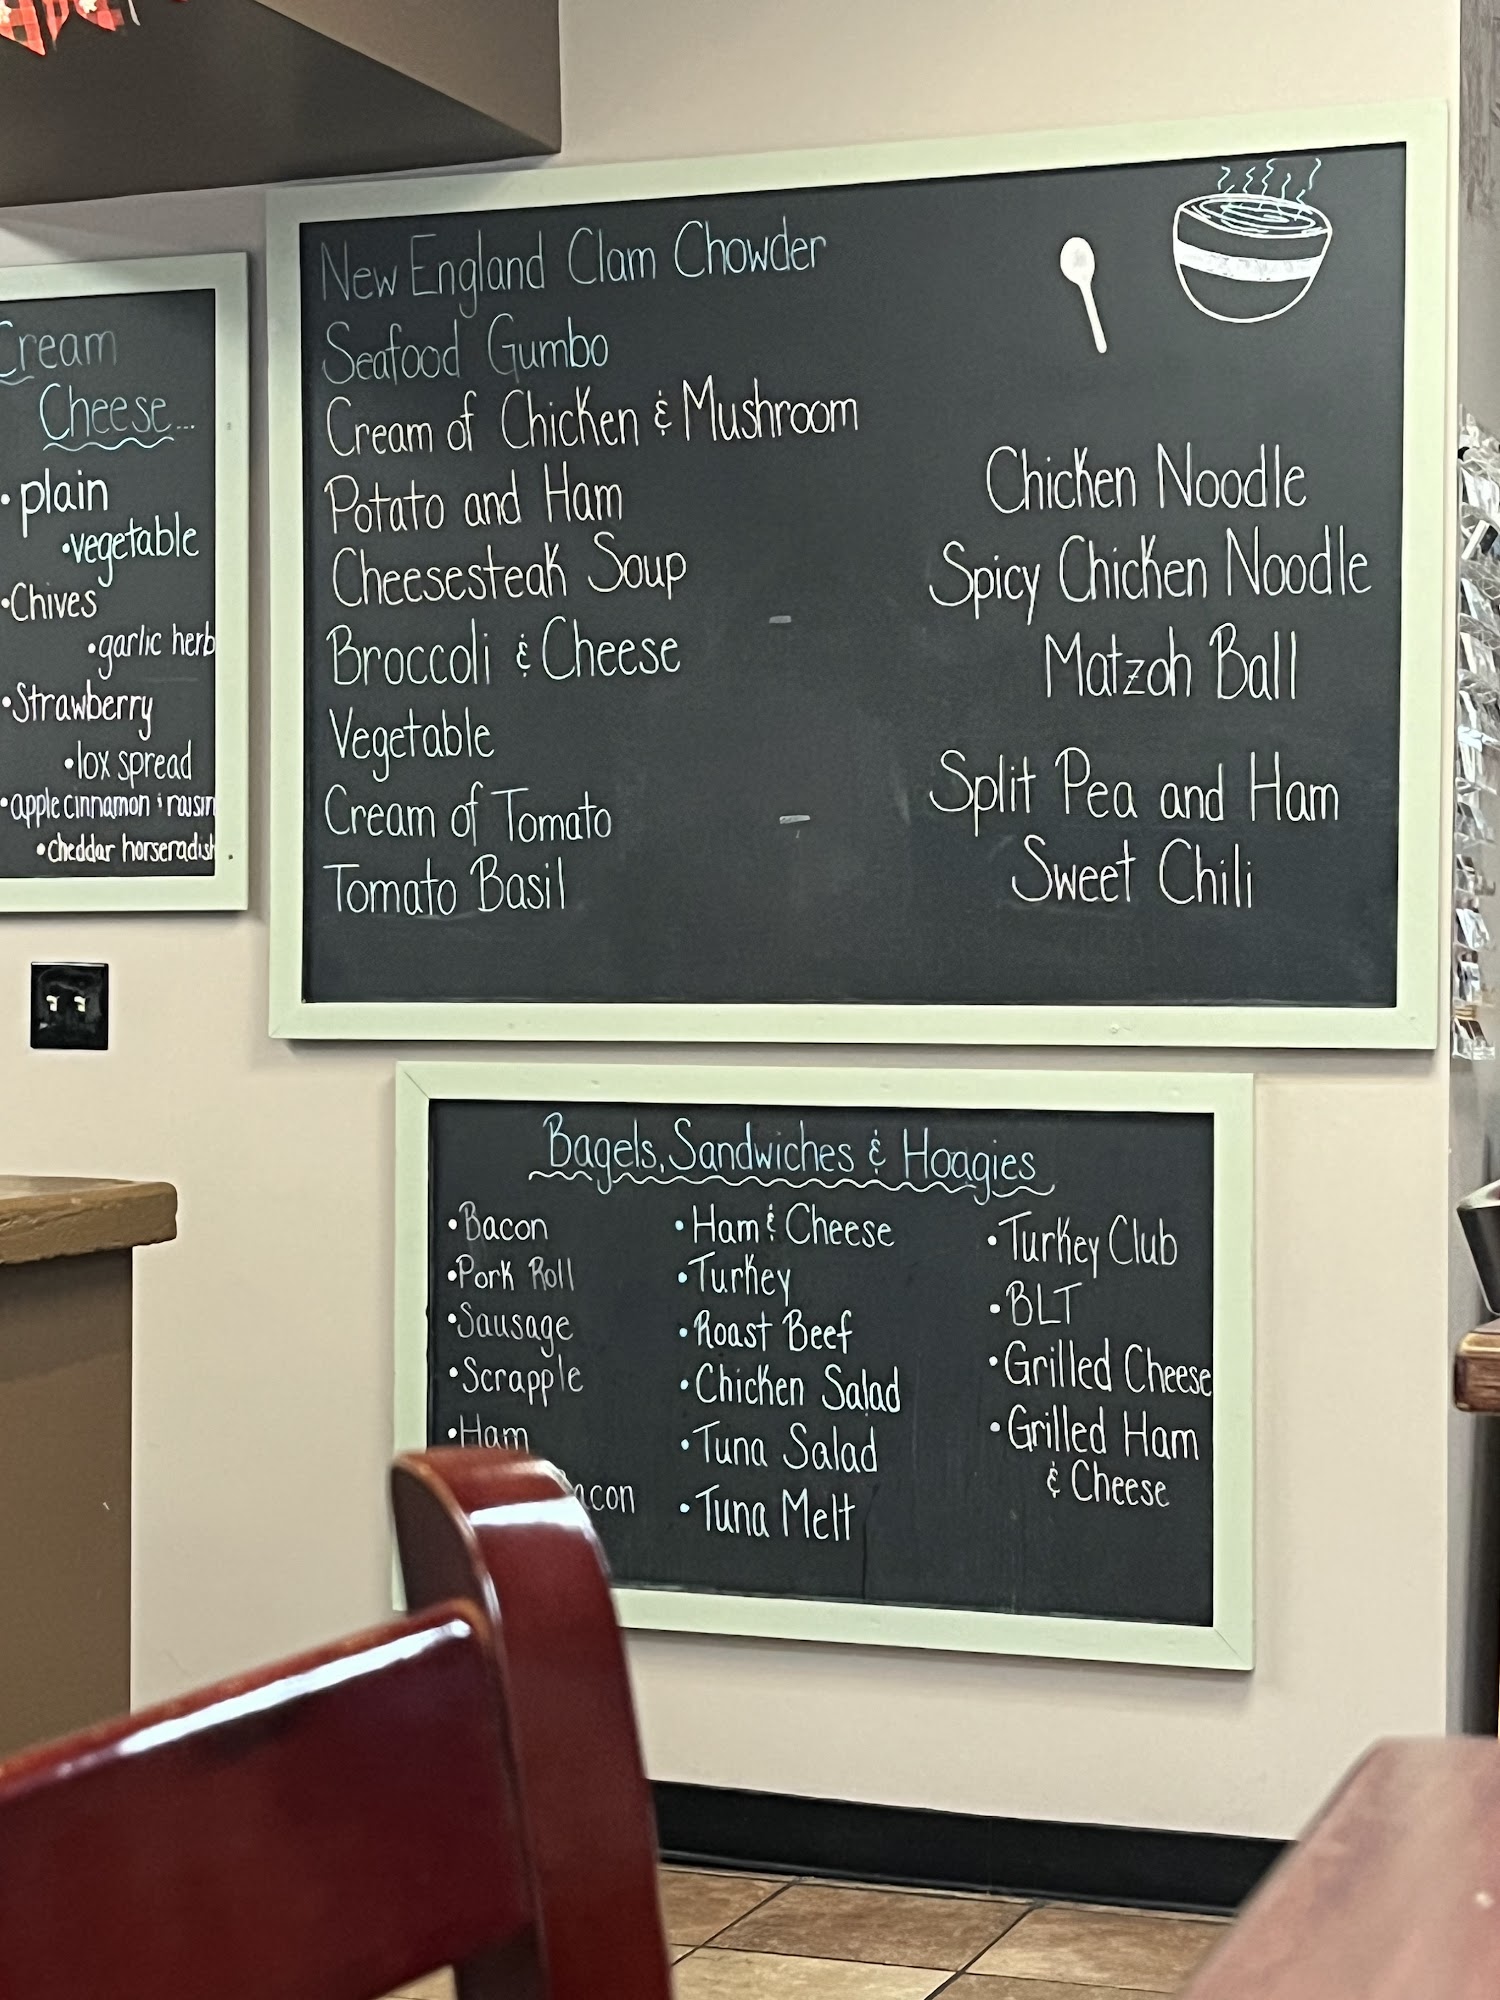 Cream
Cheese...
• plain
• vegetable
• Chives
• garlic herb
• Strawberry
• lox spread
• apple cinnamon & raisin
• cheddar horseradish
New England Clam Chowder
Seafood Gumbo
Cream of Chicken & Mushroom
Potato and Ham
Cheesesteak Soup
Broccoli & Cheese
Vegetable
Cream of Tomato
Tomato Basil
Chicken Noodle
Spicy Chicken Noodle
Matzoh Ball
Split Pea and Ham
Sweet Chili
Bagels, Sandwiches & Hoagies
• Bacon
• Pork Roll
• Sausage
• Scrapple
• Ham
• Ham & Cheese
• Turkey
• Roast Beef
• Chicken Salad
• Tuna Salad
• Tuna Melt
• Turkey Club
• BLT
• Grilled Cheese
• Grilled Ham
& Cheese